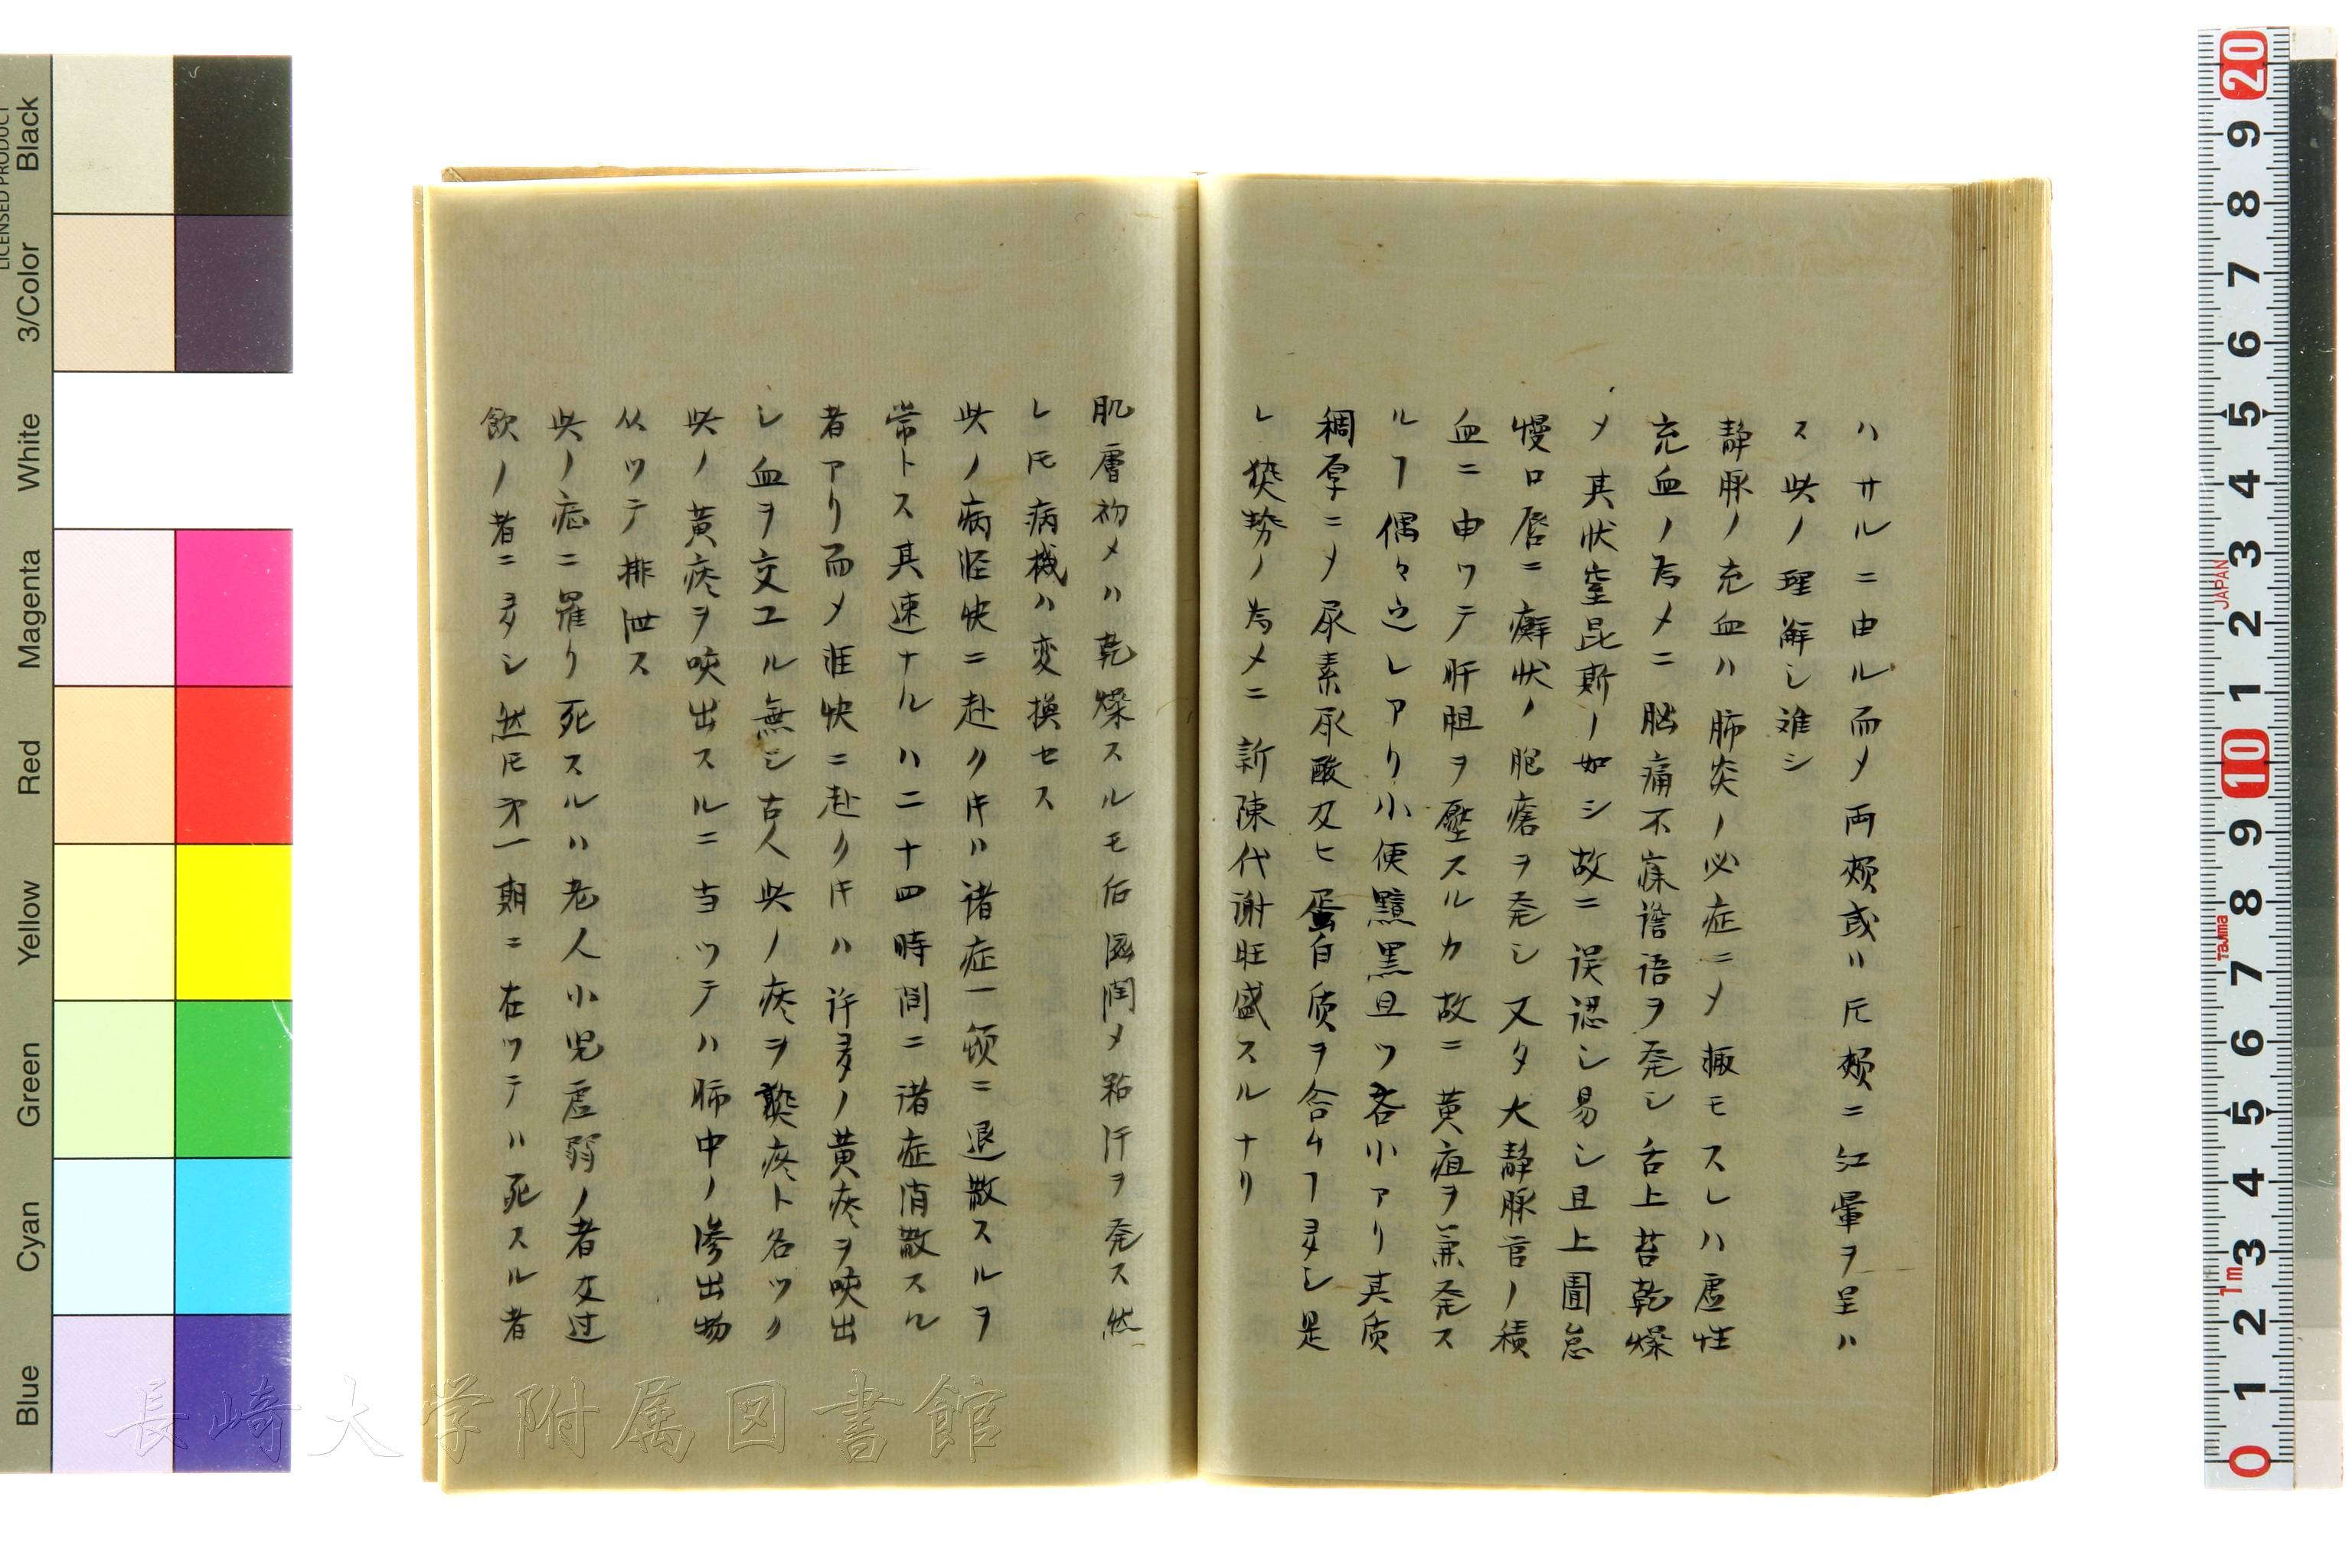 ハサルニ由ル而メ両頬或ハ片頬ニ紅暈ヲ呈ハ
ス此ノ理解シ難シ
静脉ノ充血ハ肺炎ノ必症ニメ擻モスレハ虚性
充血ノ為メニ脳痛不寐譫語ヲ発シ舌上苔乾燥
メ其状窒昆斯ノ如シ故ニ误認シ易シ且上圊怠
慢口唇ニ癬状ノ胞瘡ヲ発シ又タ大静脉官ノ積
血ニ由ツテ肝胆ヲ壓スルカ故ニ黄疸ヲ兼発ス
ルヿ偶々之レアリ小便黯黒且ツ吝小アリ其质
稠厚ニメ尿素尿酸及ヒ蛋白质ヲ含ムヿ多シ是
レ焮勢ノ為メニ新陳代謝旺盛スルナリ
肌膚初メハ乾燥スルモ后滋潤メ粘汗ヲ発ス然
レ𪜈病機ハ変換セス
此ノ病怪快ニ赴クキハ诸症一頓ニ退散スルヲ
常トス其速ナルハ二十四時間ニ诸症消散スル
者アリ而メ軽快ニ赴クキハ许多ノ黄痰ヲ咳出
シ血ヲ交ユル無シ古人此ノ痰ヲ熟痰ト名ツク
此ノ黄痰ヲ咳出スルニ当ツテハ肺中ノ滲出物
从ツテ排泄ス
此ノ症ニ罹リ死スルハ老人小児虚弱ノ者及过
飲ノ者ニ多シ然𪜈第一期ニ在ツテハ死スル者
長崎大学附属図書館
LICENSED PRODUCT
Black
3/Color
White
Magenta
Red
Yellow
Green
Cyan
Blue
20
9
8
7
6
5
4
3
JAPAN
2
1
10
9
8
Tajima
7
6
5
4
3
1m
2
1
0